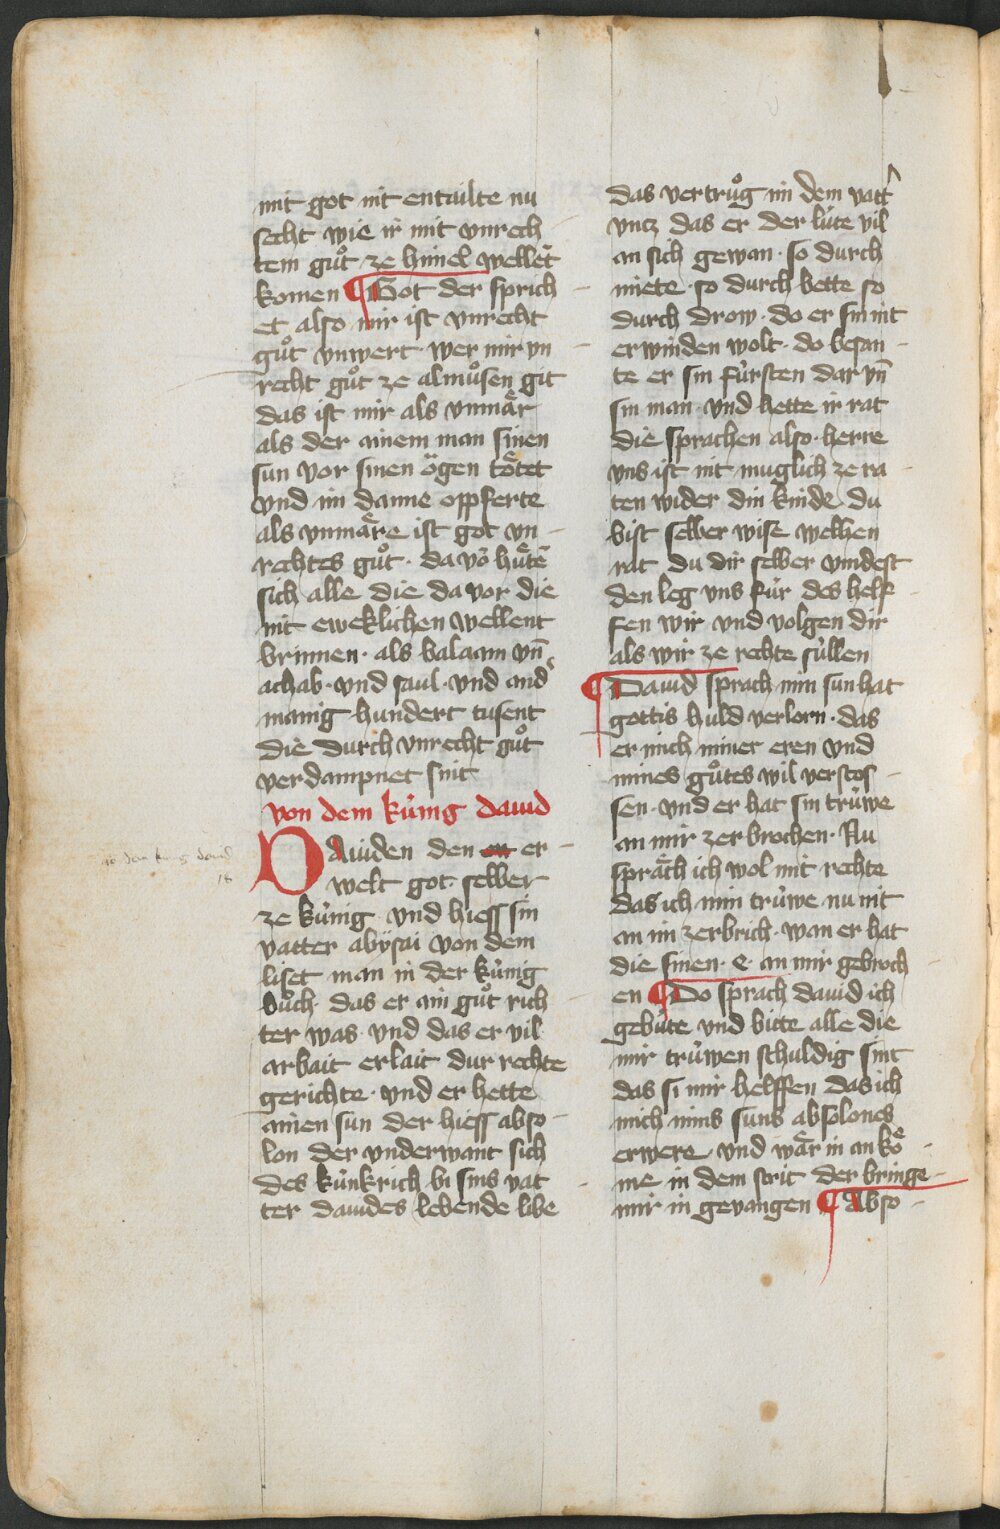 mit got nit entailte nu
secht wie ir mit vnrech -
tem guͦt ze himel wellēt
komen ¶ Got der sprich -
et also mir ist vnrecht
guͦt vnwert · wer mir vn -
recht guͦt ze almuͦsen git
das ist mir als vnmaͤr
als der ainem man sinen
sun vor sinen oͤgen toͤtet
vnd im danne oppferte
als vnmaͤre ist got vn -
rechtes guͦt · da vō huͤtē
sich alle die da vor die
nit eweklichen wellent
brinnen · als balaam vn̄
achab · vnd saul · vnd and͛
manig hundert tusent
die durch vnrecht guͦt
verdampnet sint
von dem kúnig dauid
DAuiden den er -
welt got selber
ze kúnig vnd hiess sin
vatter abysai von dem
liset man in der kúnig
buͦch · das er ain guͦt rich -
ter was · vnd das er vil
arbait erlait dur rechte
gerichte · vnd er hette
ainen sun der hiess abso -
lon der vnderwant sich
des kúnkrich bi sins vat -
ter dauides lebende libe
das vertruͦg im dem vatt͛
vntz das er der lúte vil
an sich gewan · so durch
miete · so durch bette so
durch drow · do er sin nit
erwinden wolt · do besan -
te er sin fúrsten dar vn̄
sin man · vnd hette ir rat
die sprachen also · herre
vns ist nit muglich ze ra -
ten wider din kinde du
bist selber wise welhen
rat du dir selber vindest
den leg vns fúr des helf -
fen wir vnd volgen dir
als wir ze rechte súllen
¶ Dauid sprach min sun hat
gottis huld verlorn · das
er mich miner eren vnd
mines guͦtes wil verstos -
sen · vnd er hat sin trúwe
an mir zerbrochen · Nu
spraͤch ich wol mit rechte
das ich min trúwe nu nit
an im zerbrich · wan er hat
die sinen · e · an mir gebroch -
en ¶ Do sprach dauid ich
gebúte vnd bitte alle die
mir trúwen schuldig sint
das si mir helffen das ich
mich mins suns absolones
erwere vnd waͤr in an koͤ -
me in dem strit der bringe -
mir in gevangen ¶ Abso -